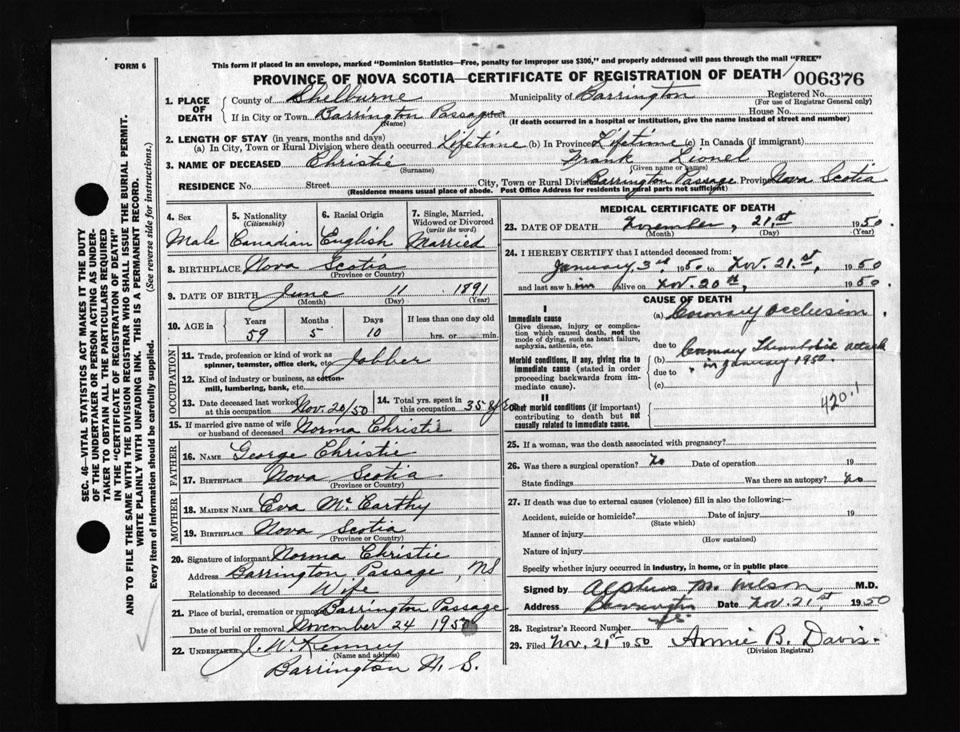 This form if placed in an envelope, marked "Dominion Statistics—Free, penalty for improper use $300," and properly addressed will pass through the mail "FREE"
FORM 6
PROVINCE OF NOVA SCOTIA—CERTIFICATE OF REGISTRATION OF DEATH
006376
1. PLACE OF DEATH
County of Shelburne Municipality of Barrington Registered No.
(For use of Registrar General only)
If in City or Town Barrington Passage Street House No.
(Name) (If death occurred in a hospital or institution, give the name instead of street and number)
2. LENGTH OF STAY (in years, months and days)
(a) In City, Town or Rural Division where death occurred Lifetime (b) In Province Lifetime (c) In Canada (if immigrant)
3. NAME OF DECEASED Christie Frank Lionel
(Surname) (Given name or names)
RESIDENCE No. Street City, Town or Rural Division Barrington Passage Province Nova Scotia
(Residence means usual place of abode. Post Office Address for residents in rural parts not sufficient)
4. Sex Male
5. Nationality (Citizenship) Canadian
6. Racial Origin English
7. Single, Married, Widowed or Divorced (write the word) Married
8. BIRTHPLACE Nova Scotia
(Province or Country)
9. DATE OF BIRTH June 11 1891
(Month) (Day) (Year)
10. AGE in Years Months Days If less than one day old
59 5 10 hrs. or min.
OCCUPATION
11. Trade, profession or kind of work as spinner, teamster, office clerk, etc. Jobber
12. Kind of industry or business, as cotton-mill, lumbering, bank, etc.
13. Date deceased last worked at this occupation Nov. 20/50
14. Total yrs. spent in this occupation 35 yrs
15. If married give name of wife or husband of deceased Norma Christie
FATHER
16. Name George Christie
17. Birthplace Nova Scotia
(Province or Country)
MOTHER
18. MAIDEN NAME Eva McCarthy
19. BIRTHPLACE Nova Scotia
(Province or Country)
20. Signature of informant Norma Christie
Address Barrington Passage, NS
Relationship to deceased Wife
21. Place of burial, cremation or removal Barrington Passage
Date of burial or removal November 24 1950
22. UNDERTAKER J. W. Kenney
(Name and address)
Barrington N. S.
MEDICAL CERTIFICATE OF DEATH
23. DATE OF DEATH November, 21st 1950
(Month) (Day) (Year)
24. I HEREBY CERTIFY that I attended deceased from:
January 3rd 1950 to Nov. 21st, 1950
and last saw him alive on Nov. 20th, 1950.
CAUSE OF DEATH
I
Immediate cause
Give disease, injury or complication which caused death, not the mode of dying, such as heart failure, asphyxia, asthenia, etc.
(a) Coronary Occlusion
due to
Morbid conditions, if any, giving rise to immediate cause (stated in order proceeding backwards from immediate cause).
(b) Coronary Thrombotic attack
due to in January 1950.
(c)
II
Other morbid conditions (if important) contributing to death but not causally related to immediate cause.
420.1
25. If a woman, was the death associated with pregnancy?
26. Was there a surgical operation? No Date of operation 19
State findings Was there an autopsy? No
27. If death was due to external causes (violence) fill in also the following:—
Accident, suicide or homicide? Date of injury 19
(State which)
Manner of injury
(How sustained)
Nature of injury
Specify whether injury occurred in industry, in home, or in public place
Signed by Alpheus M. Wilson M.D.
Address Barrington Date Nov. 21st, 1950
28. Registrar's Record Number
29. Filed Nov. 21st 1950 Annie B. Davis.
(Division Registrar)
SEC. 46—VITAL STATISTICS ACT MAKES IT THE DUTY
OF THE UNDERTAKER OR PERSON ACTING AS UNDER-
TAKER TO OBTAIN ALL THE PARTICULARS REQUIRED
IN THE "CERTIFICATE OF REGISTRATION OF DEATH"
AND TO FILE THE SAME WITH THE DIVISION REGISTRAR WHO SHALL ISSUE THE BURIAL PERMIT.
WRITE PLAINLY WITH UNFADING INK. THIS IS A PERMANENT RECORD.
Every item of information should be carefully supplied. (See reverse side for instructions.)